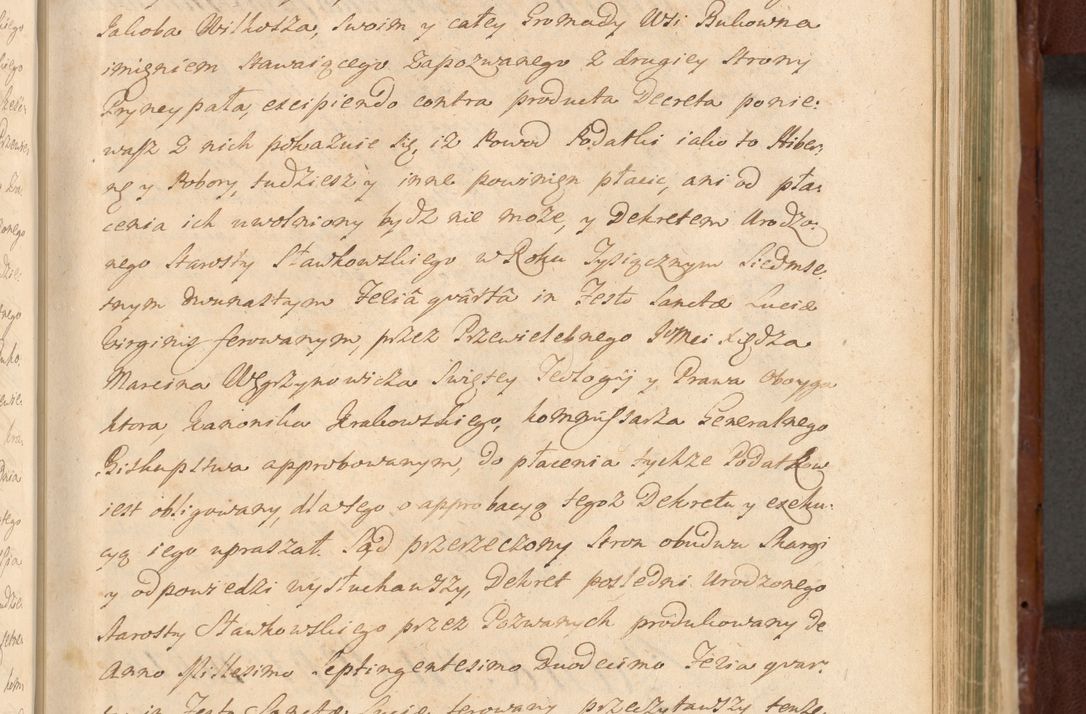 Jakoba Wilkosza, Swoim y całey Gromady Wsi Bukowna
imięniem stawaiącego Zapozwanego z drugiey strony
Pryncypała, excipiendo contra producta Decreta ponie:
wasz z nich pokazuie się, iż Powod Podatki iako to Hiber:
nę y Pobory, tudziesz y inne powinięn płacic, ani od pła:
cenia ich uwolniony bydz nie może, y Dekretem Urodzo:
nego Starosty Sławkowskiego w Roku Tysiącznym Siedmse:
tnym dwunastym Feriâ quârtâ in Festo Sanctæ Luciæ
Virginis ferowanym, przez Przewielebnego JmMci Xiędza
Marcina Węgrzynowicza Swiętey Teologij y Prawa Oboyga
ktora, Kanonika Krakowskiego, kommissarza Generalnego
Biskupstwa approbowanym, do płacenia tychże Podatkow
iest obligowany, dla tego o approbacyą tegoż Dekretu y exeku:
cyą iego upraszał. Sąd przerzeczony stron obudwu Skargi
y odpowiedzi wysłuchawszy, Dekret posledni Urodzonego
Starosty Sławkowskiego przez Pozwanych produkowany de
Anno Millesimo Septingentesimo Duodecimo Feria quar:
ta in Festo Sanctæ Luciæ ferowany przeczytawszy tenże